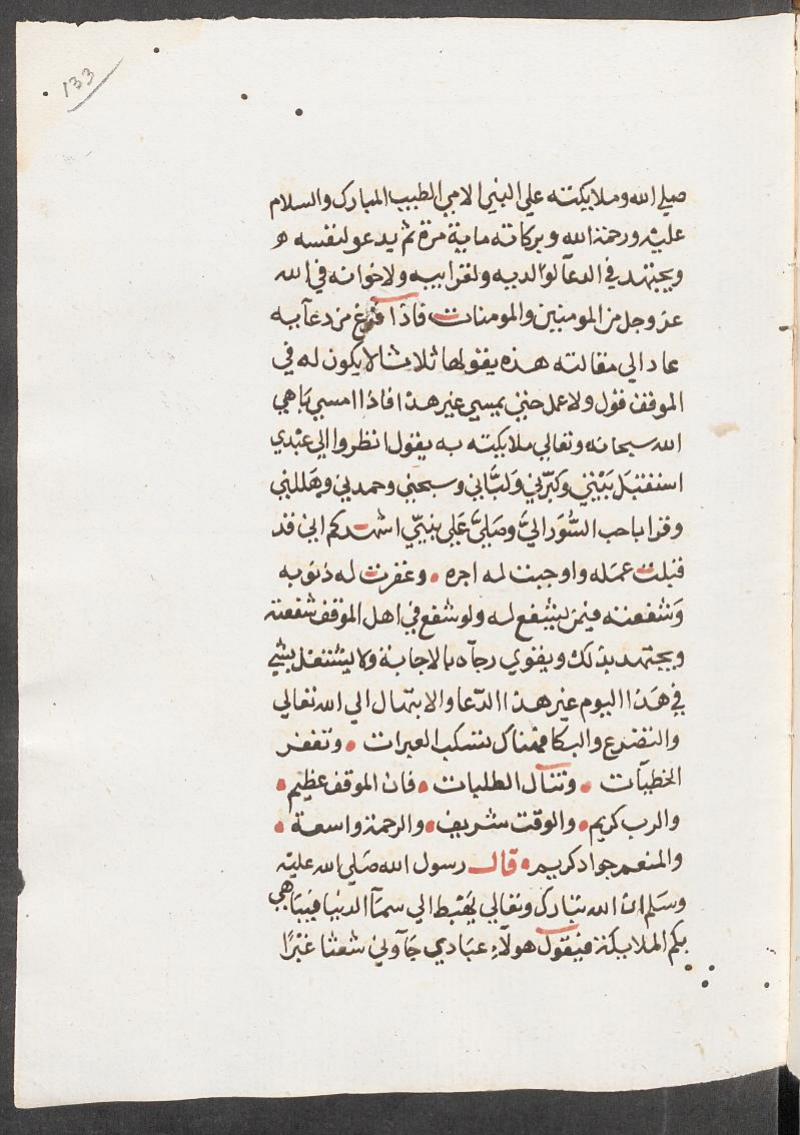 133
صلي الله وملايكته علي النبي الامي الطيب المبارك والسلام
عليه ورحمة الله وبركاته ماية مرة ثم يدعو لنفسه ه
ويجتهد في الدعآ لوالديه ولقرابيه ولاخوانه في الله
عز وجل من المومنين والمومنات فاذا فرغ من دعآيه
عاد الي مقالته هذه يقولها ثلاثا لا يكون له في
الموقف قول ولا عمل حتي يمسي غير هذا فاذا امسي باهي
الله سبحانه وتعالي ملايكته به يقول انظروا الي عبدي
استقبل بيتي وكبرني ولبّاني وسبحني وحمدني وهللني
وقرا باحب السُّوَر اليَّ وصَليَّ عَلي نبيّي اشهدكم اني قد
قبلت عمله واوجبت له اجره • وغفرت له ذنوبه
وشفعته فيمن يشفع له ولو شفع في اهل الموقف شفعته
ويجتهد بذلك ويقوي رجآه بالاجابة ولا يشتغل بشي
في هذا اليوم غير هذا الدّعا والابتهال الي الله تعالي
والتضرع والبكا فهناك تسكب العبرات • وتغفر
الخطيآت • وتنال الطلبات • فان الموقف عظيم •
والرب كريم • والوقت شريف • والرحمة واسعة •
والمنعم جواد كريم • قال رسول الله صَلي الله عليه
وسَلم ان الله تبارك وتعالي يَهْبط الي سمآ الدنيا فيباهي
بكم الملايكة فيقول هولآءِ عبَادي جَآوني شعثا غبْرًا